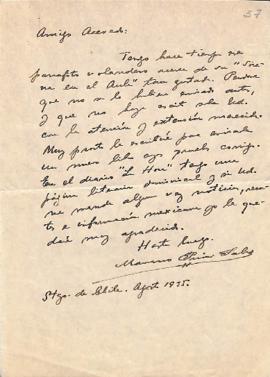 57
Amigo Acevedo:
Tengo hace tiempo un
parrafito volandero acerca de su
en el Aula" tan gustado. Perdone
que no se lo hubiera enviado antes,
y que no haya escrito sobre Ud.
con la atención y extensión merecida.
Muy pronto le escribiré para enviarle
un nuevo libro cuyas pruebas corrijo.
En el diario "La Hora" tengo una
página literaria dominical y si Ud.
me manda alguna vez noticias,
e información mexicana yo le que-
daré muy agradecido.
Hasta luego.
Mariano Picón Salas
Stgo. de Chile. Agosto 1935.